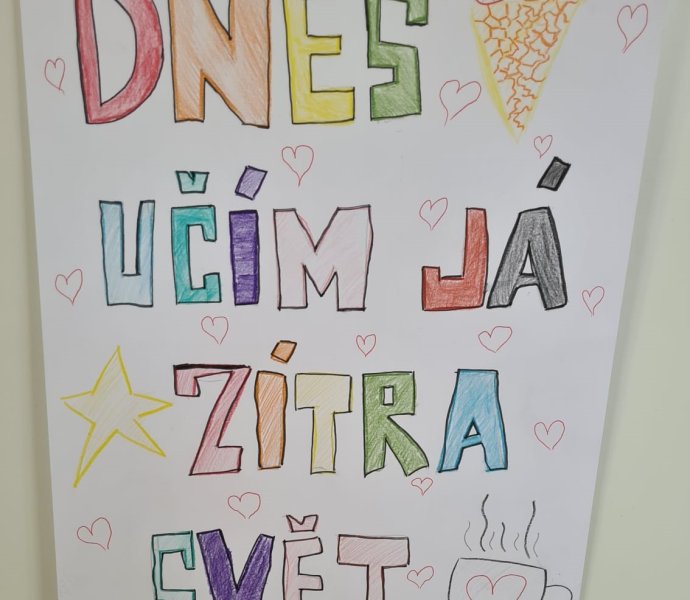 DNES
UČÍM JÁ
ZÍTRA
SVĚT